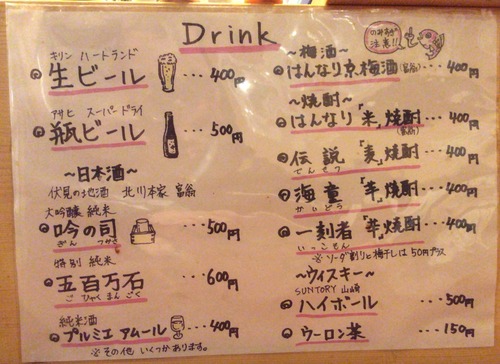 Drink
キリン ハートランド
生ビール ・・・400円
アサヒ スーパードライ
瓶ビール ・・・500円
～日本酒～
伏見の地酒 北川本家 富翁
大吟醸 純米
吟の司 ・・・500円
ぎん つかさ
特別 純米
五百万石 ・・・600円
ごひゃくまんごく
純米酒
プルミエアムール ・・・400円
※その他 いくつかあります。
のみすぎ
注意!!
～梅酒～
はんなり京梅酒(富翁) ・・・400円
～焼酎～
はんなり「米」焼酎 ・・・400円
(富翁)
伝説「麦」焼酎 ・・・400円
でんせつ
海童「芋」焼酎 ・・・400円
かいどう
一刻者「芋」焼酎 ・・・400円
いっこもん
※ソーダ割りと梅干しは50円プラス
～ウィスキー～
SUNTORY 山崎
ハイボール ・・・500円
ウーロン茶 ・・・150円